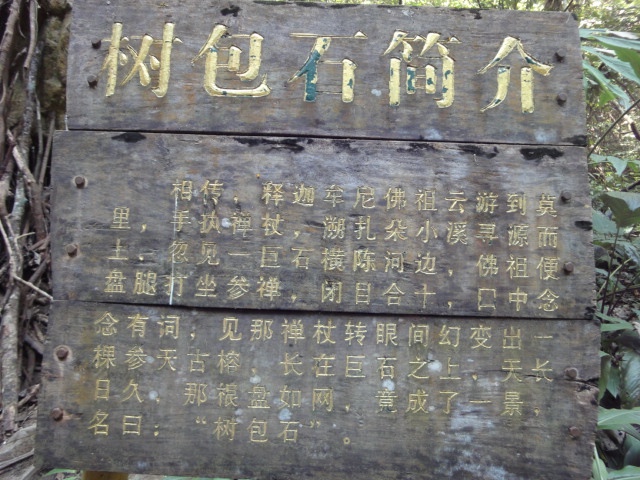 树包石简介
相传，释迦牟尼佛祖云游到莫
里，手执禅杖，溯扎朵小溪寻源而
上，忽见一巨石横陈河边，佛祖便
盘腿打坐参禅，闭目合十，口中念
念有词；见那禅杖转眼间幻变出一
棵参天古榕，长在巨石之上，天长
日久，那根盘如网，竟成了一景，
名曰：“树包石”。